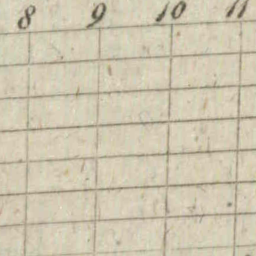 8 9 10 11